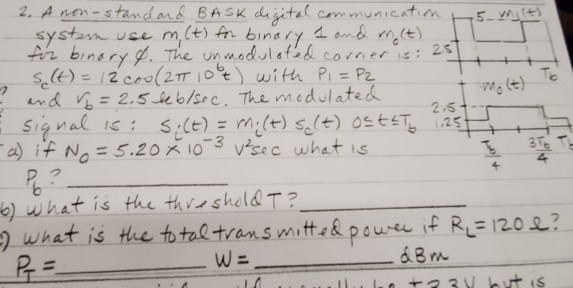 2. A non-standard BASK digital communication
system use m₁(t) for binary 1 and m₀(t)
for binary 0. The unmodulated carrier is:
s_c(t) = 12 cos(2π 10⁶t) with P₁ = P₂
and r_b = 2.5 kb/sec. The modulated
signal is: s_i(t) = m_i(t) s_c(t) 0≤t≤T_b
a) if N₀ = 5.20 × 10⁻³ v²sec what is
P_b?
b) what is the threshold T?
) what is the total transmitted power if R_L = 120 Ω?
P_T = W = dBm
5 m₁(t)
2.5
T_b
m₀(t)
2.5
1.25
T_b/4 3T_b/4 T_b